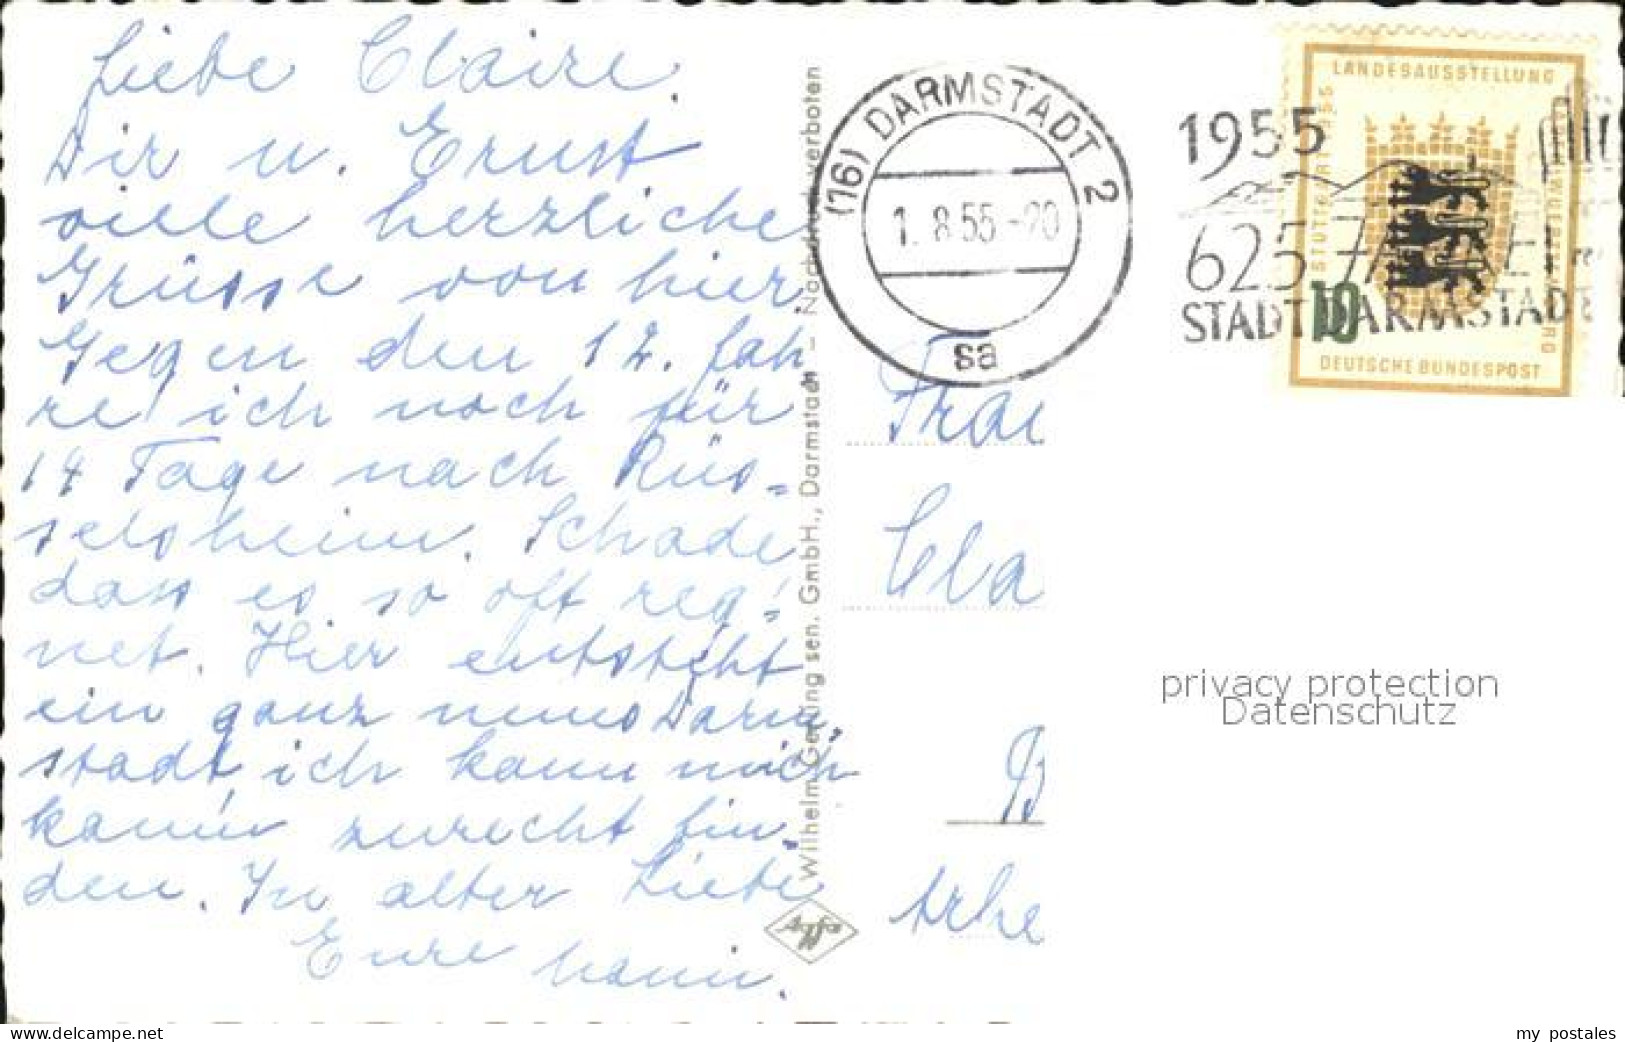 Liebe Claire.
Dir u. Ernst
viele herzliche
Grüsse von hier.
Gegen den 12. fah
re ich noch für
14 Tage nach Rüs=
selsheim. Schade
dass es so oft reg=
net. Hier entsteht
ein ganz neues Darm
stadt, ich kann mich
kaum zurecht fin-
den. In alter Liebe
Eure
Wilhelm Gerling sen. GmbH., Darmstadt - Nachdruck verboten
(16) DARMSTADT 2
1. 8.55 -20
sa
1955
625
STADT DARMSTADT
LANDESAUSSTELLUNG
STUTTGART 1955
BADEN-WUERTTEMBERG
10
DEUTSCHE BUNDESPOST
Frau
Cla
B
privacy protection
Datenschutz
www.delcampe.net
my_postales